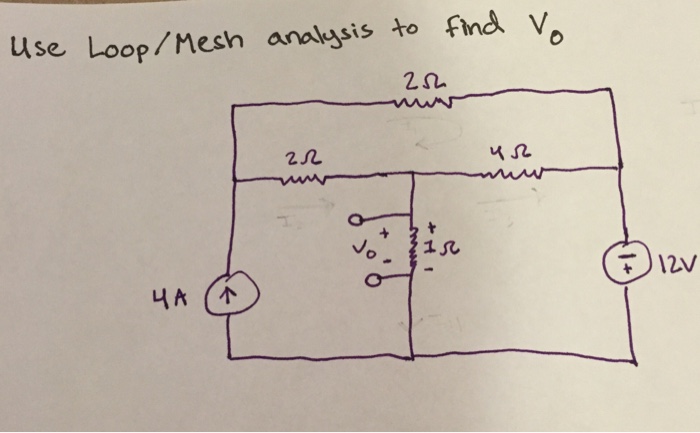 Use Loop/Mesh analysis to find Vo
2Ω
2Ω
4Ω
+
+
Vo
1Ω
-
-
4A
-
+
12V